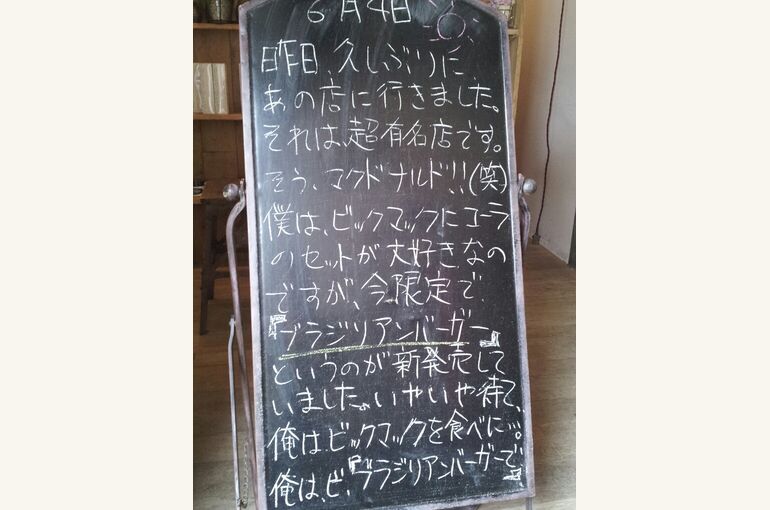 6月4日
昨日、久しぶりに
あの店に行きました。
それは、超有名店です。
そう、マクドナルド!!(笑)
僕は、ビックマックにコーラ
のセットが大好きなの
ですが、今限定で
『ブラジリアンバーガー』
というのが新発売して
いました。いやいや待て、
俺はビックマックを食べに…。
俺は、ビ、『ブラジリアンバーガーで』